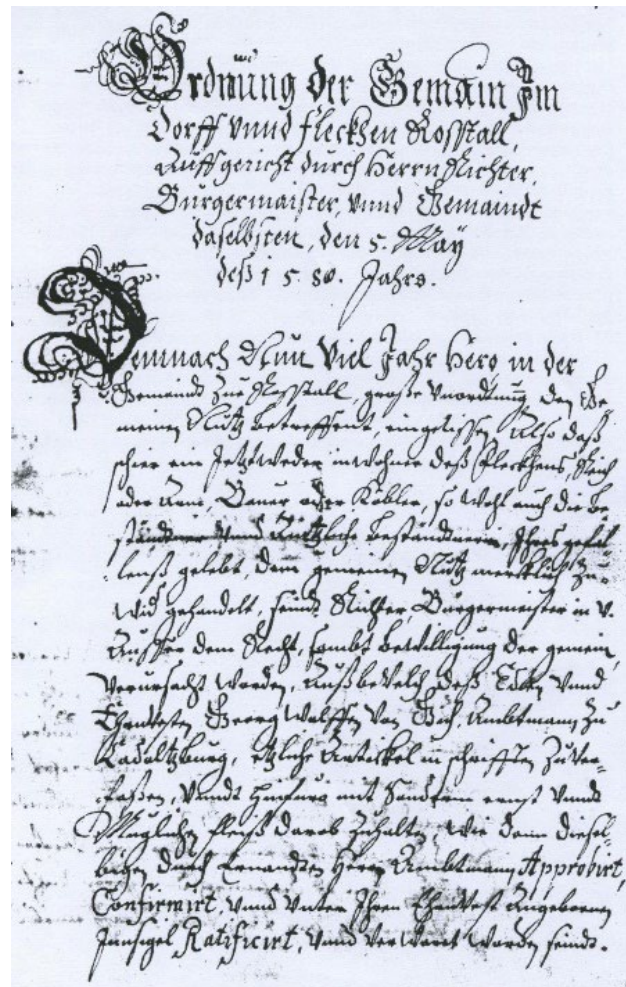 Ordnung der Gemain Im
Dorff vnnd Fleckhen Rosstall,
Auffgericht durch Herrn Richter,
Burgermaister, vnnd Gemaindt
daselbsten, den 5. May
deß 1580. Jahrs.
Demnach Nun Viel Jahr Hero in der
Gemaind zue Rosstall, große Vnordnung den Ge-
meinen Nutz betreffent, eingerissen Also daß
schier ein Jetztweder inwohner deß Fleckhens, Reich
oder Arm, Bauer oder Köbler, so wohl auch die Be-
ständner vnnd bestandtnerin, Ihres gefal-
lenß gelebt, dem gemeinen Nutz mercklich Zu-
wid gehandelt, seindt Richter, Burgermeister
Ausser dem Recht, sambt bewilligung der gemein,
Verursacht worden, Auß bevelch deß Edlen vnnd
Ehrnvesten Georg Wolffen Von Gich, Ambtmann Zu
Kadoltzburg, etzliche ArticKel in schrifften Zu Ver-
faßen, Vnndt mit ernst Vnndt
Müglichen fleiß darob Zuhalten, Wie dann diesel-
bigen durch Ernandten Herrn Ambtmann Approbirt,
Confirmirt, vnnd Vnter Ihren Ehrnvest Angebornen
Innsigel Ratificirt, Vnnd Verwaret Worden seindt.